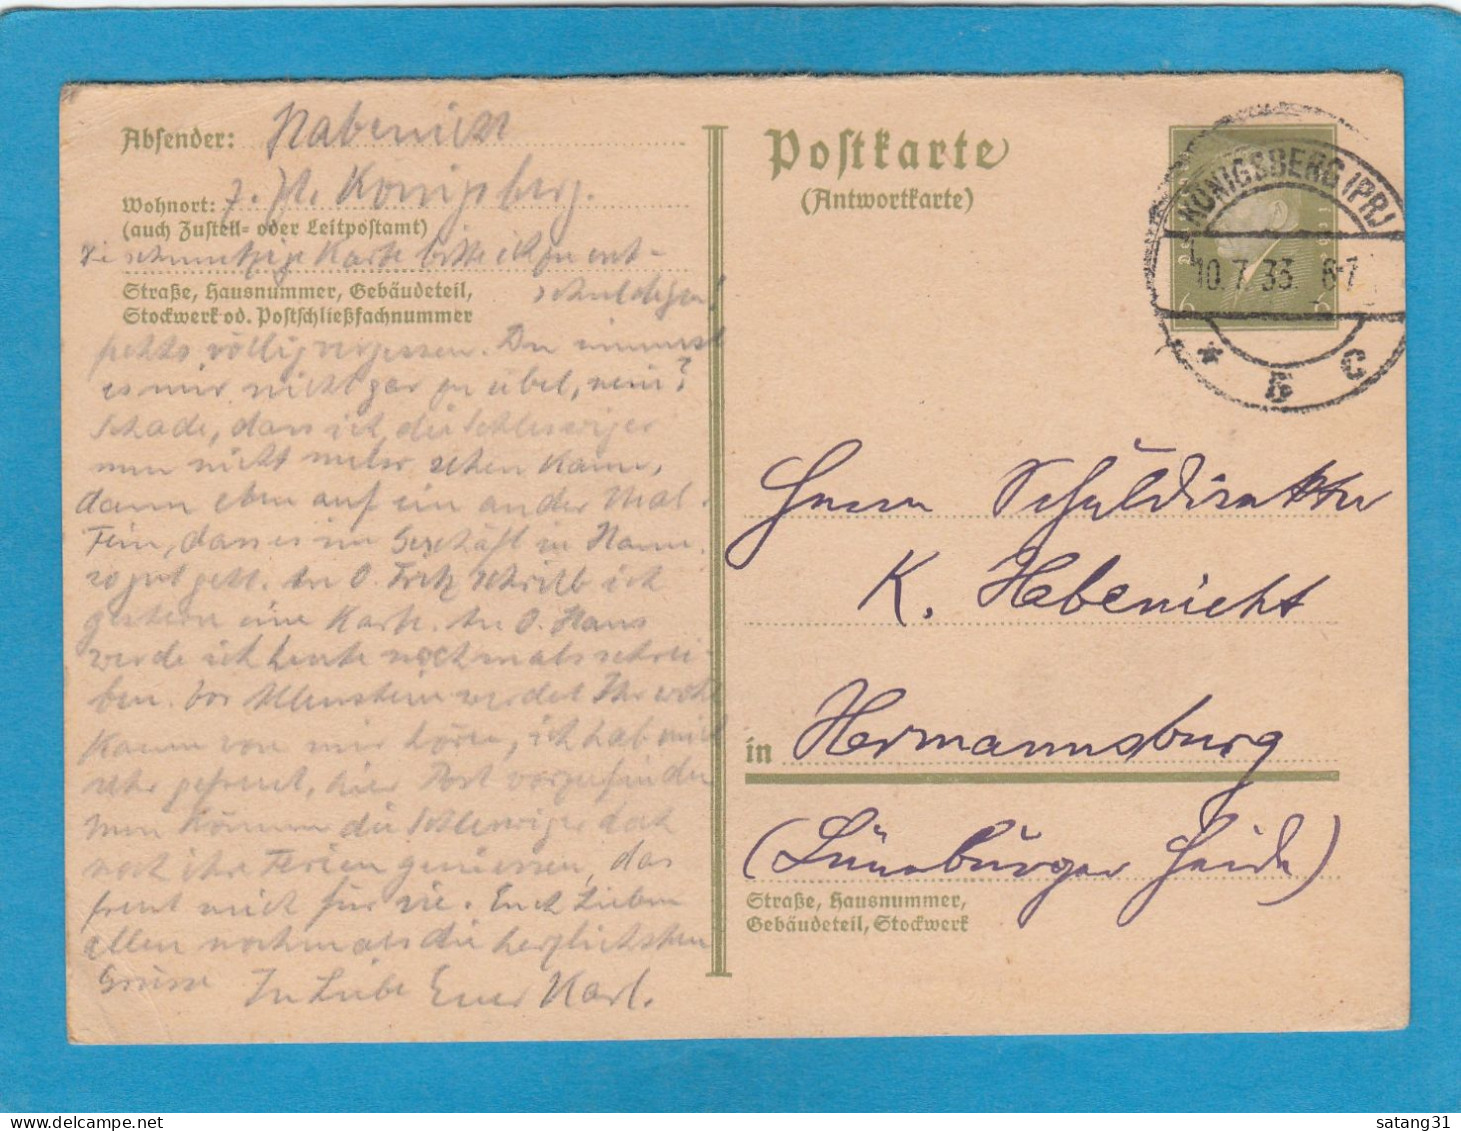 Absender: Habenicht
Wohnort: z. Zt. Königsberg.
(auch Zustell- oder Leitpostamt)
Die schmutzige Karte bitte ich zu ent-
Straße, Hausnummer, Gebäudeteil,
schuldigen!
Stockwerk od. Postschließfachnummer
völlig vergessen. Du nimmst
es mir nicht gar zu übel, nein?
Schade, dass ich die Schleswiger
nun nicht mehr sehen kann,
dann eben auf ein ander Mal.
Fein, dass es im Geschäft in Hann.
so gut geht. An O. Fritz schrieb ich
gestern eine Karte. An O. Hans
werde ich heute nochmals schrei-
ben. Vor Allenstein werdet Ihr wohl
kaum von mir hören, ich hab mich
sehr gefreut, hier Post vorzufinden
Nun können die Schleswiger doch
noch ihre Ferien geniessen, das
freut mich für sie. Euch Lieben
allen nochmals die herzlichsten
Grüsse In Liebe Euer Karl.
Postkarte
(Antwortkarte)
KÖNIGSBERG (PR)
10.7.33. 6-7
* 5 c
6 6
Herrn Schuldirektor
K. Habenicht
in Hermannsburg
(Lüneburger Heide)
Straße, Hausnummer,
Gebäudeteil, Stockwerk
satang31